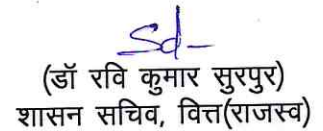 Sd-
(डॉ रवि कुमार सुरपुर)
शासन सचिव, वित्त(राजस्व)